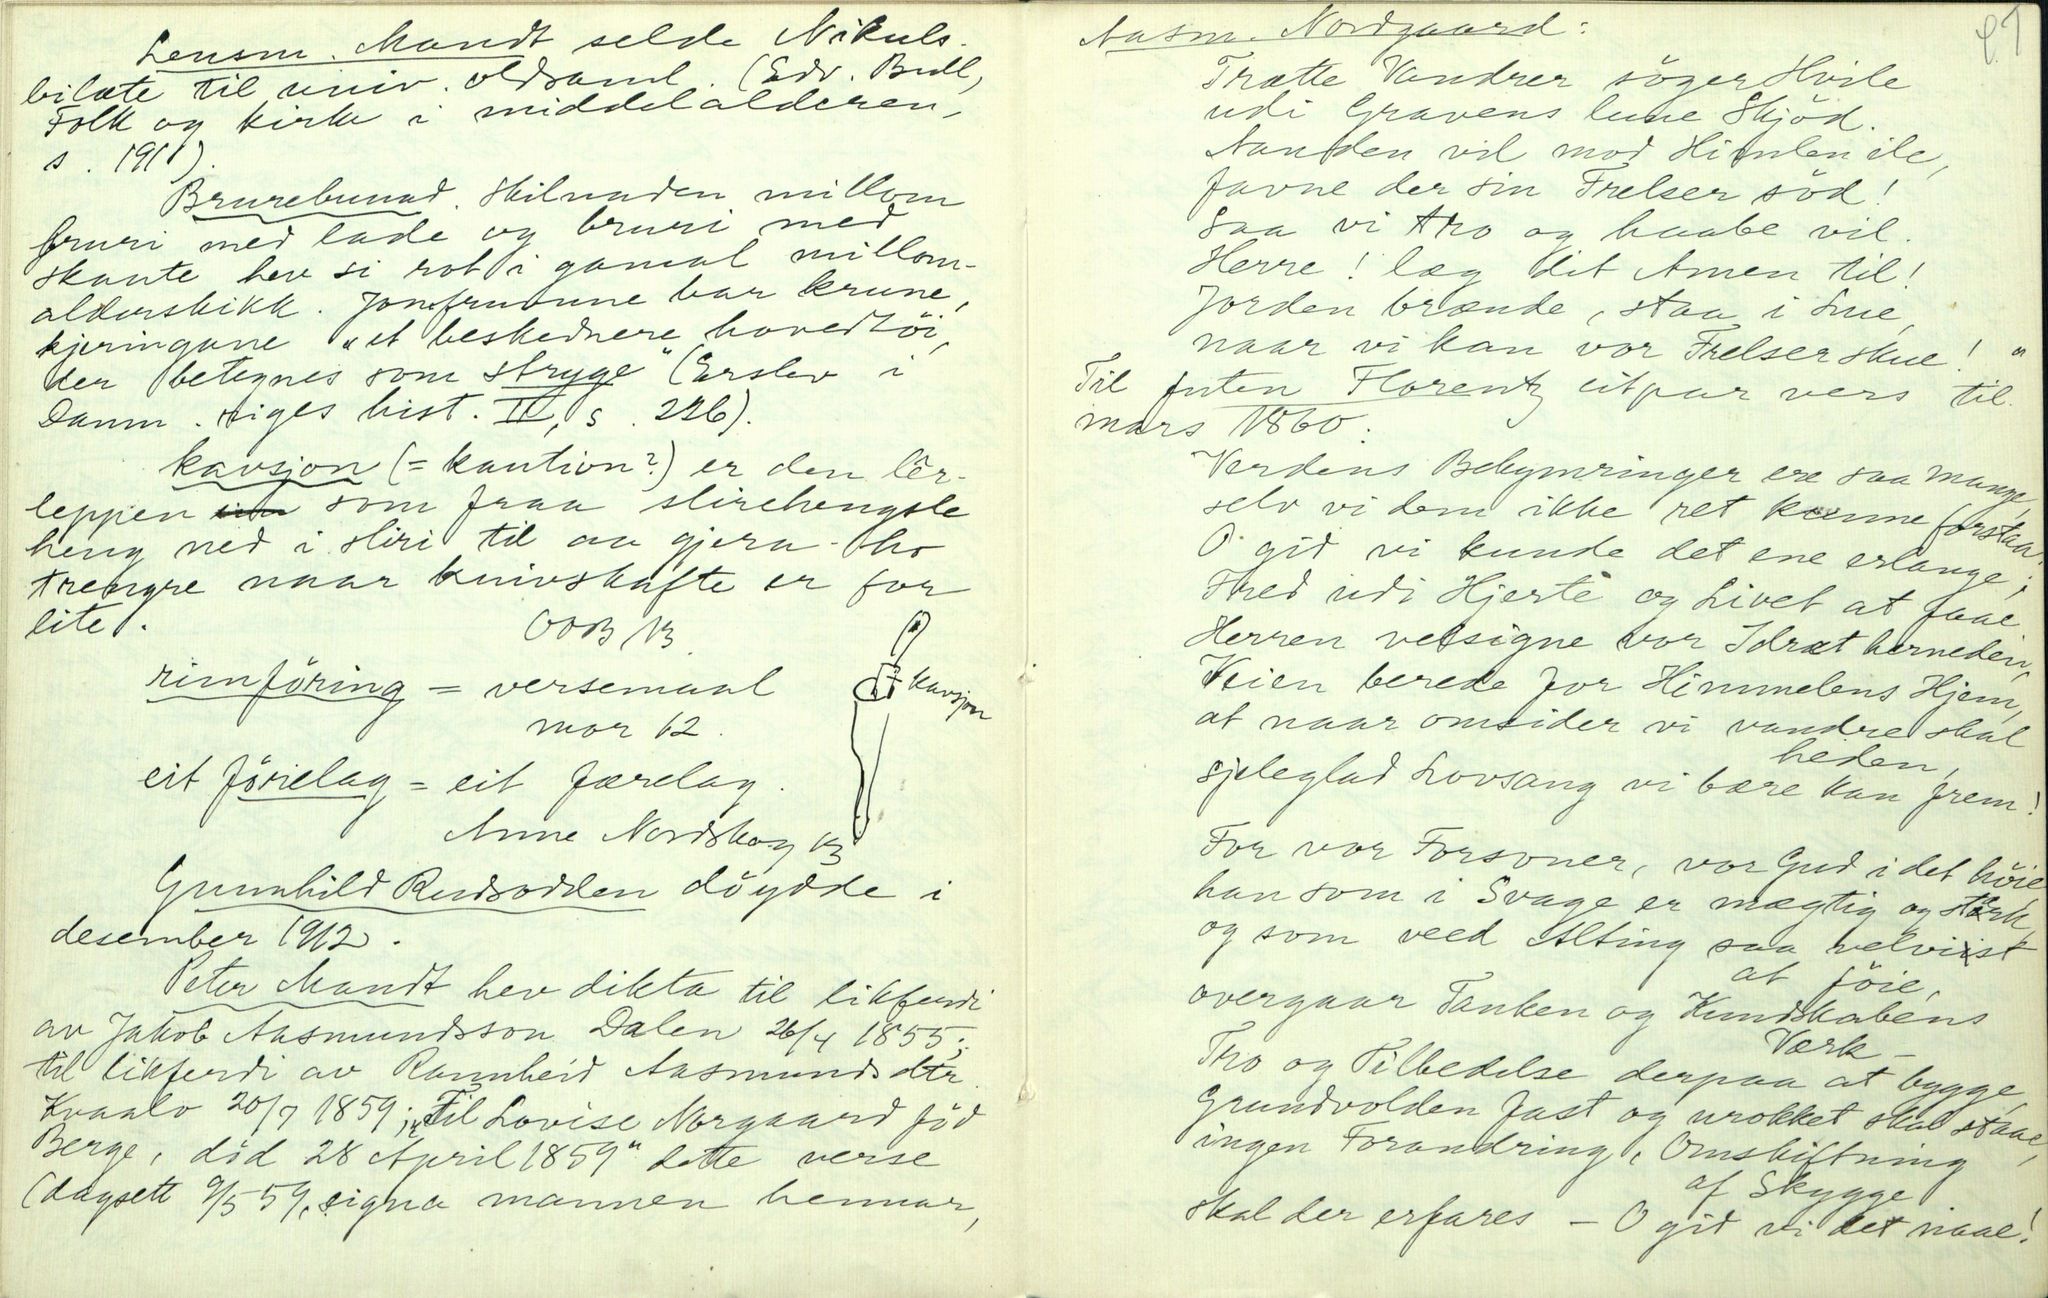 Lensm. Mandt selde Nikuls-
bilæte til univ. oldsaml. (Edv. Bull,
Folk og kirke i middelalderen,
s. 191).
Brurebunad. Skilnaden millom
bruri med lade og bruri med
skaute hev si rot i gamal millom-
alderskikk. Jomfruune bar krune,
kjeringane "et beskednere hovedtöi,
der betegnes som stryge" (Erslev i
Danm. riges hist. II, s. 226).
kavsjon (= kaution?) er den lêr-
leppen som fraa slirehengsle
heng ned i sliri til aa gjera ho
trengre naar knivskafte er for
lite.
OOB 13.
rimföring = versemaal
mor 12.
kavsjon
eit förielag = eit færelag.
Anne Nordskog 13
Gunnhild Rudsodden döydde i
desember 1912.
Peter Mandt hev dikta til likferdi
av Jakob Aasmundsson Dalen 26/4 1855;
til likferdi av Rannheid Aasmundsdtr.
Kvaalo 20/7 1859; "Til Lovise Norgaard föd
Berge, död 28 April 1859" dette verse
(dagsett 9/5 59, signa mannen hennar,
Aasm. Nordgaard:
Trætte Vandrer söger Hvile
udi Gravens lune Skjöd.
Aanden vil mod Himlen ile,
favne der sin Frelser söd!
Saa vi tro og haabe vil.
Herre! læg dit Amen til!
Jorden brænde, staa i Lue,
naar vi kan vor Frelser skue!"
Til futen Florentz eitpar vers til
mars 1860:
Verdens Bekymringer ere saa mange,
selv vi dem ikke ret kunne forstaa.
O gid vi kunde det ene erlange,
Fred udi Hjerte og Livet at faae
Herren velsigne vor Idræt herneden,
Veien berede for Himmelens Hjem,
at naar omsider vi vandre skal
heden,
sjeleglad Lovsang vi bære kan frem!
For vor Forsoner, vor Gud i det höie,
han som i Svage er mægtig og stærk,
og som veed Alting saa velviist
at föie,
overgaar Tanken og Kundskabens
Værk –
Tro og Tilbedelse derpaa at bygge,
Grundvolden fast og urokket skal staae,
ingen Forandring, Omskiftning
af Skygge
skal der erfares – O gid vi det naae!